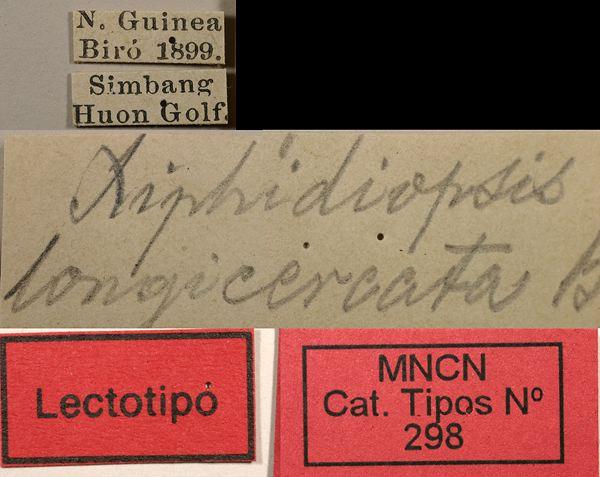 N. Guinea
Biró 1899.
Simbang
Huon Golf.
Xiphidiopsis
longicercata B
Lectotipo
MNCN
Cat. Tipos Nº
298